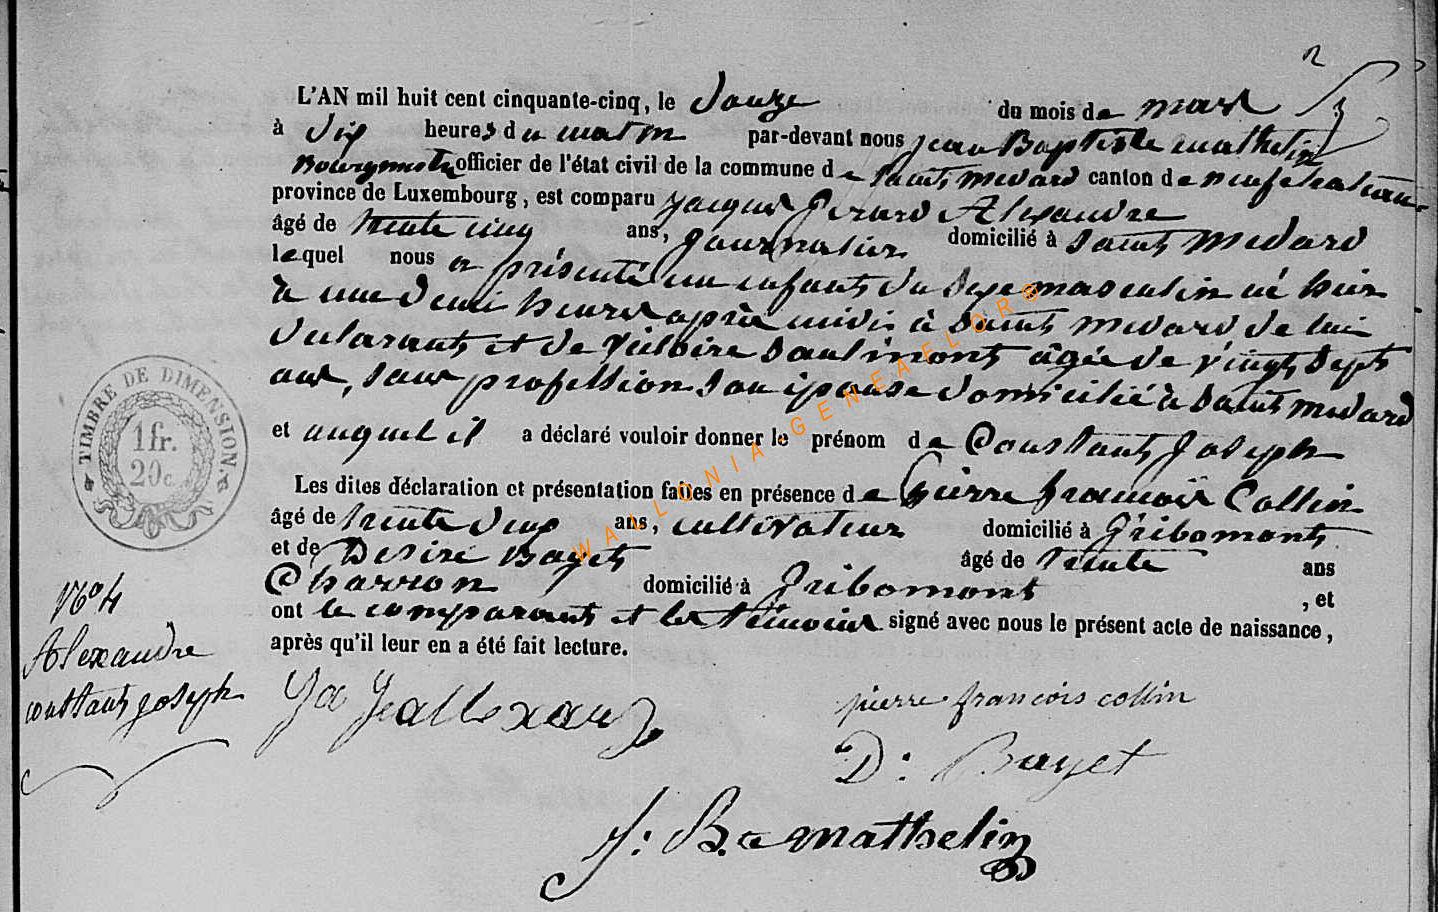 2
L'AN mil huit cent cinquante-cinq, le douze du mois de mars
à dix heures du matin par-devant nous jean Baptiste mathelin
Bourgmestre officier de l'état civil de la commune de saint medard canton de neufchateau
province de Luxembourg, est comparu jacques Gerard Alexandre
âgé de trente cinq ans, journalier domicilié à saint medard
lequel nous a présenté un enfant du sexe masculin né hier
à une heure après midi à saint medard de lui
declarant et de Victoire saulmont âgée de vingt sept
ans, sans profession son épouse domicilié à saint medard
et auquel il a déclaré vouloir donner le prénom de Constant joseph
Les dites déclaration et présentation faites en présence de pierre francois Collin
âgé de trente deux ans, cultivateur domicilié à Gribomont
et de Desiré Bayet âgé de trente ans
Charron domicilié à Gribomont, et
ont le comparant et les témoins signé avec nous le présent acte de naissance,
après qu'il leur en a été fait lecture.
TIMBRE DE DIMENSION.
1 fr.
20c
N° 4
Alexandre
constant joseph
pierre francois collin
D: Bayet
J: B. mathelin
WALLONIA GENEAELOR®